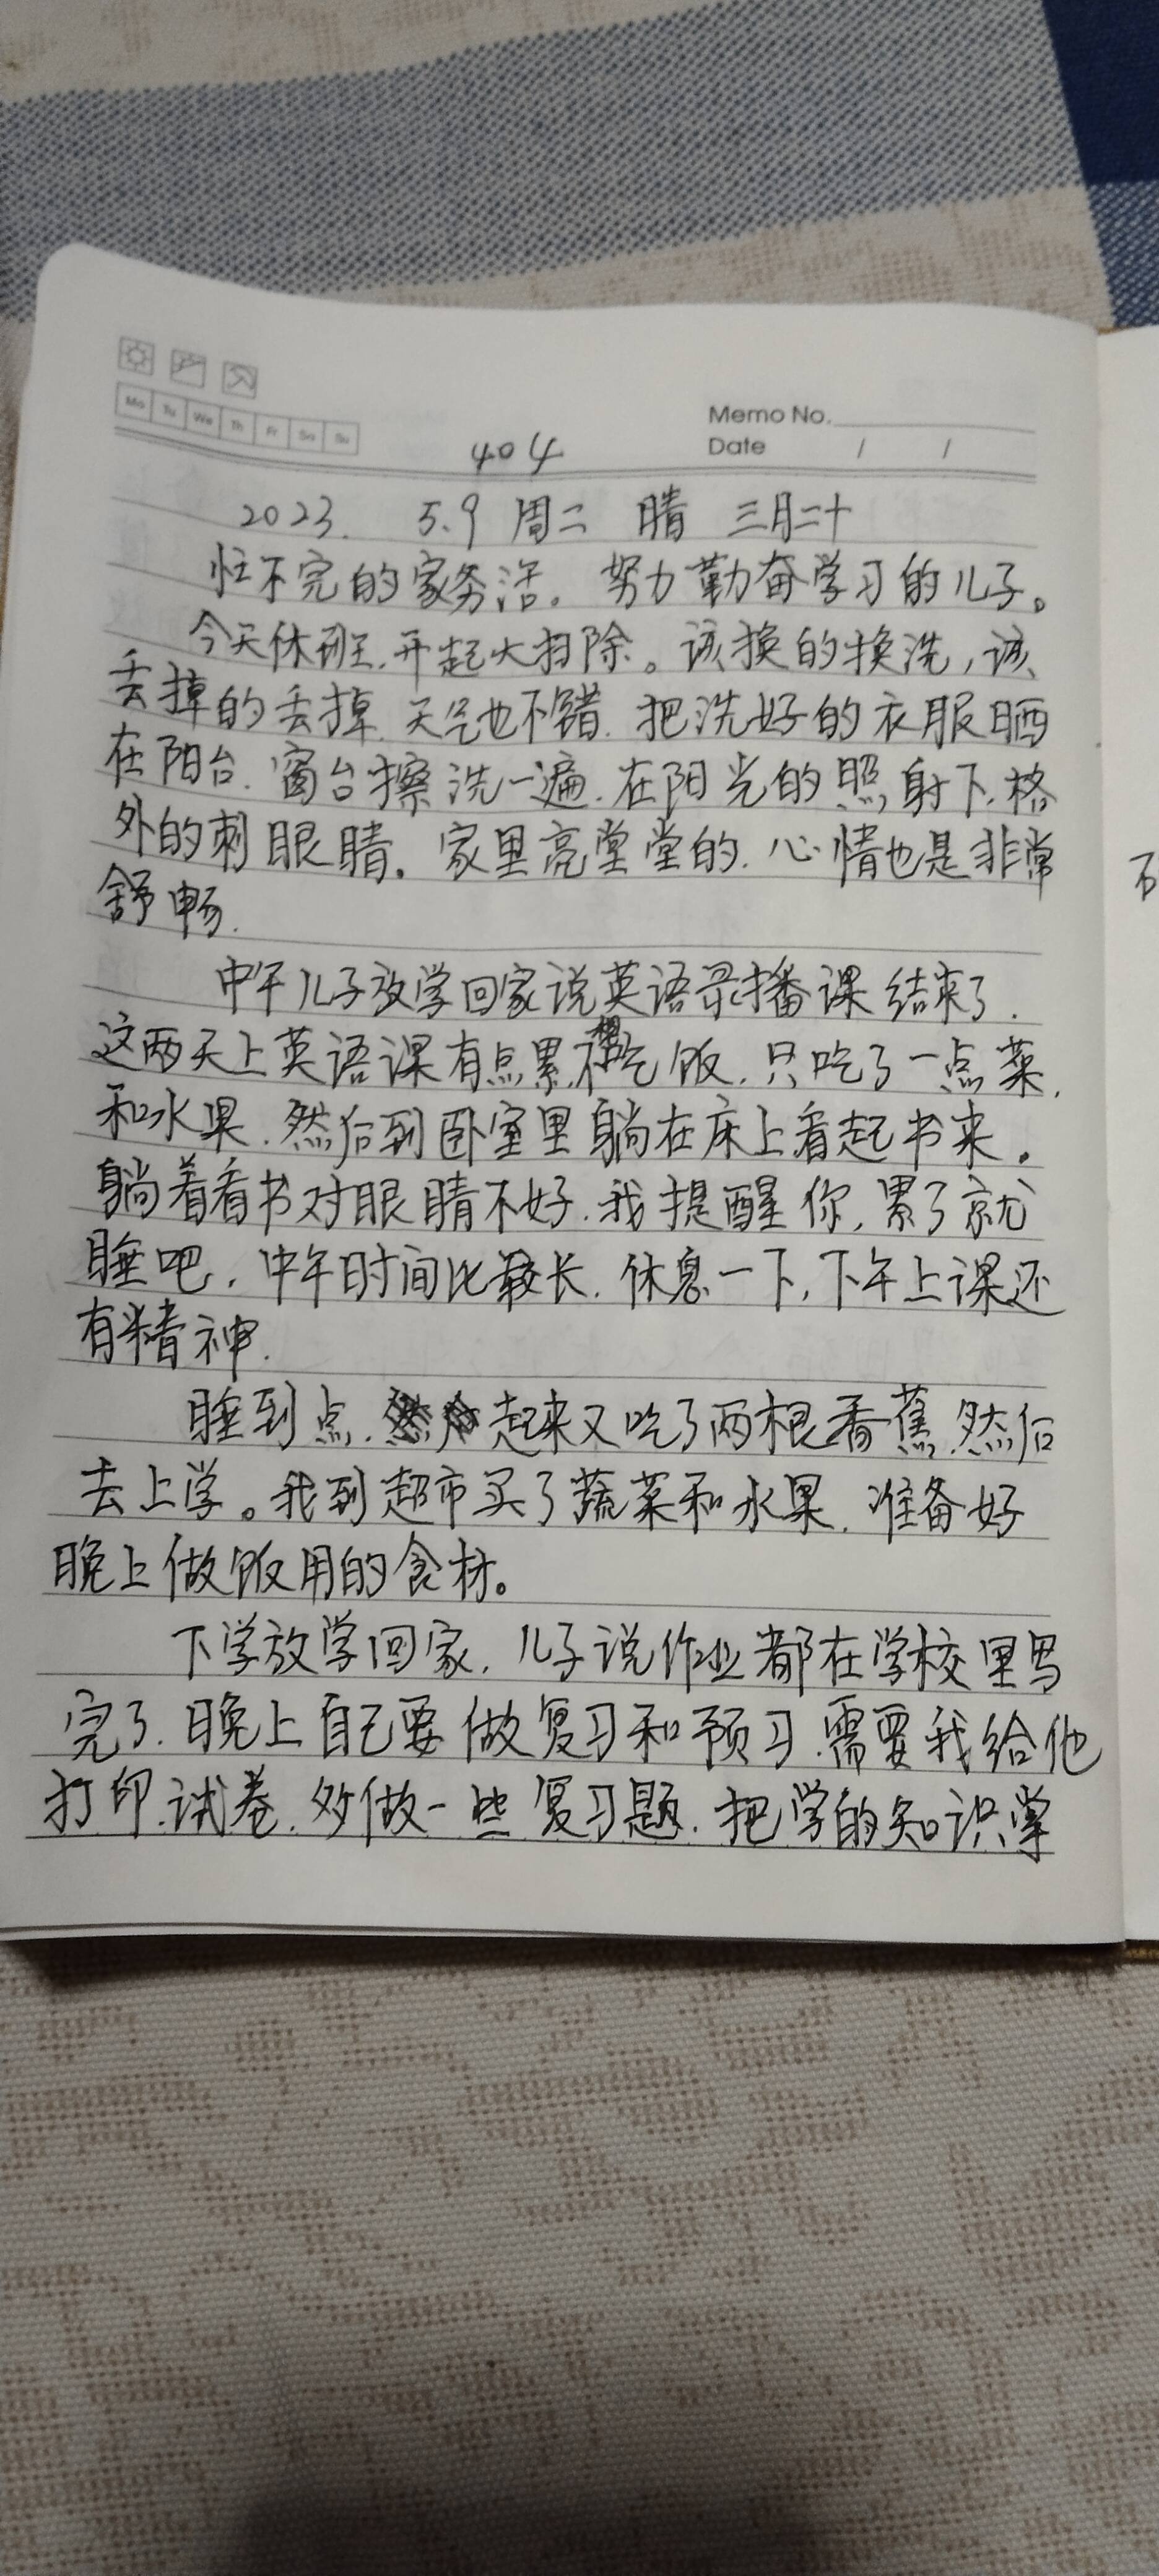 Mo Tu We Th Fr Sa Su
Memo No.
Date / /
404
2023. 5.9 周二 晴 三月二十
忙不完的家务活。努力勤奋学习的儿子。
今天休班,开起大扫除。该换的换洗,该
丢掉的丢掉.天气也不错.把洗好的衣服晒
在阳台.窗台擦洗一遍.在阳光的照射下.格
外的刺眼睛。家里亮堂堂的.心情也是非常
舒畅.
中午儿子放学回家说英语录播课结束了.
这两天上英语课有点累.不想吃饭.只吃了一点菜,
和水果.然后到卧室里躺在床上看起书来。
躺着看书对眼睛不好.我提醒你,累了就
睡吧,中午时间比较长.休息一下,下午上课还
有精神.
睡到点.起来又吃了两根香蕉.然后
去上学。我到超市买了蔬菜和水果.准备好
晚上做饭用的食材。
下学放学回家,儿子说作业都在学校里写
完了.晚上自己要做复习和预习.需要我给他
打印.试卷.多做一些复习题.把学的知识掌